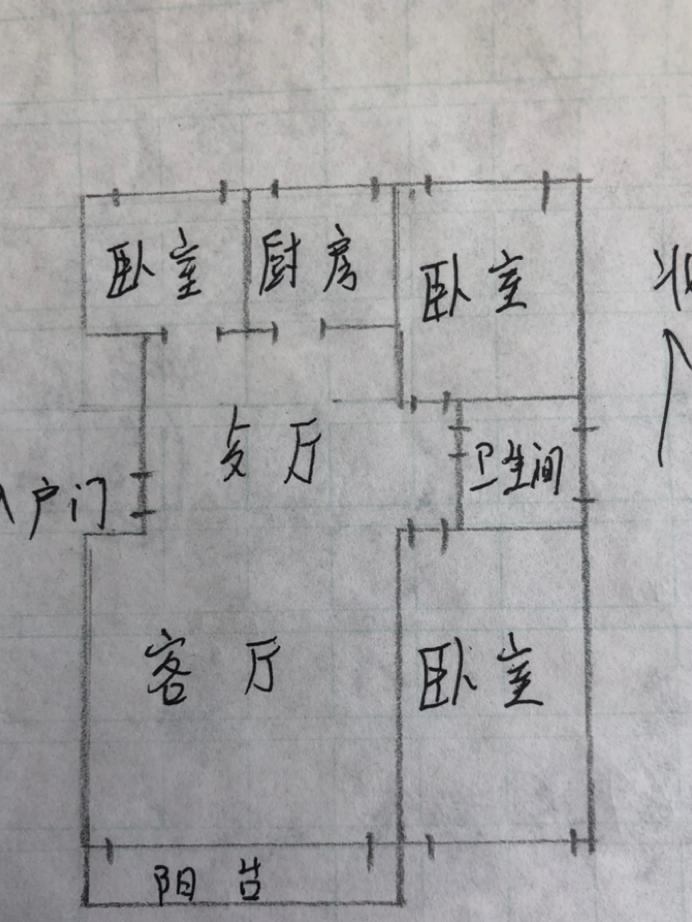 卧室
厨房
卧室
北
餐厅
卫生间
入户门
客厅
卧室
阳台